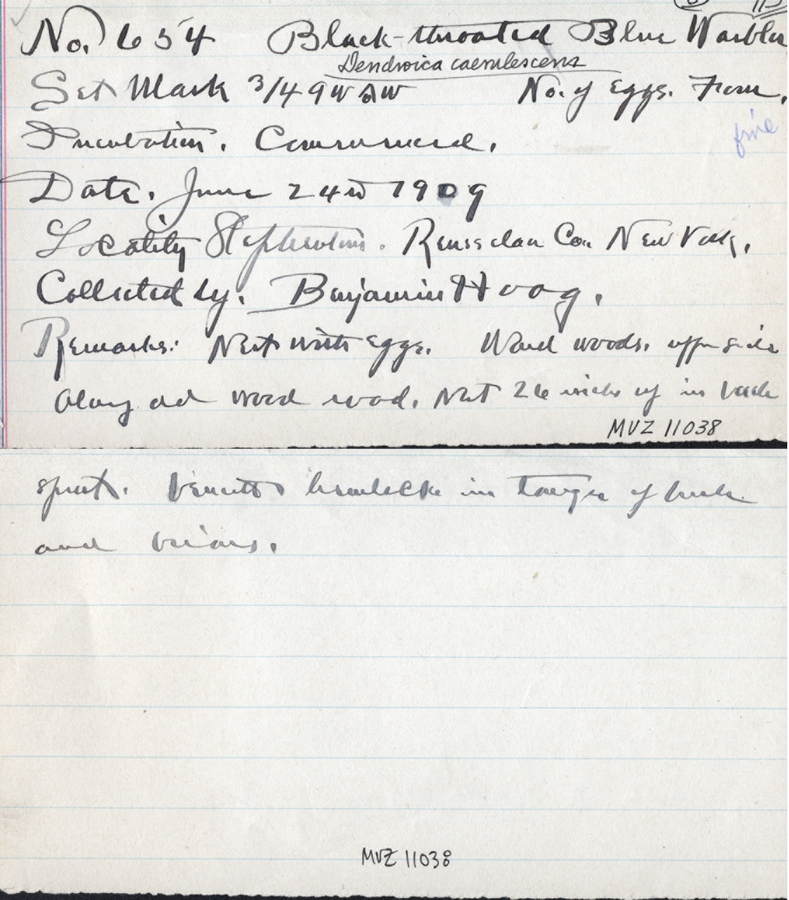 No. 654 Black-throated Blue Warbler
Dendroica caerulescens
Set Mark 3/4 9 No. of Eggs. Four.
fine
Incubation. Commenced.
Date. June 24 1909
Locality Stephentown. Rensselaer Co. New York.
Collected by. Benjamin Hoag.
Remarks: Nest with eggs. woods.
along old wood road. Nest 26 inches up in
MVZ 11038
sprout. beneath hemlocks in tangle of
and briars.
MVZ 11038